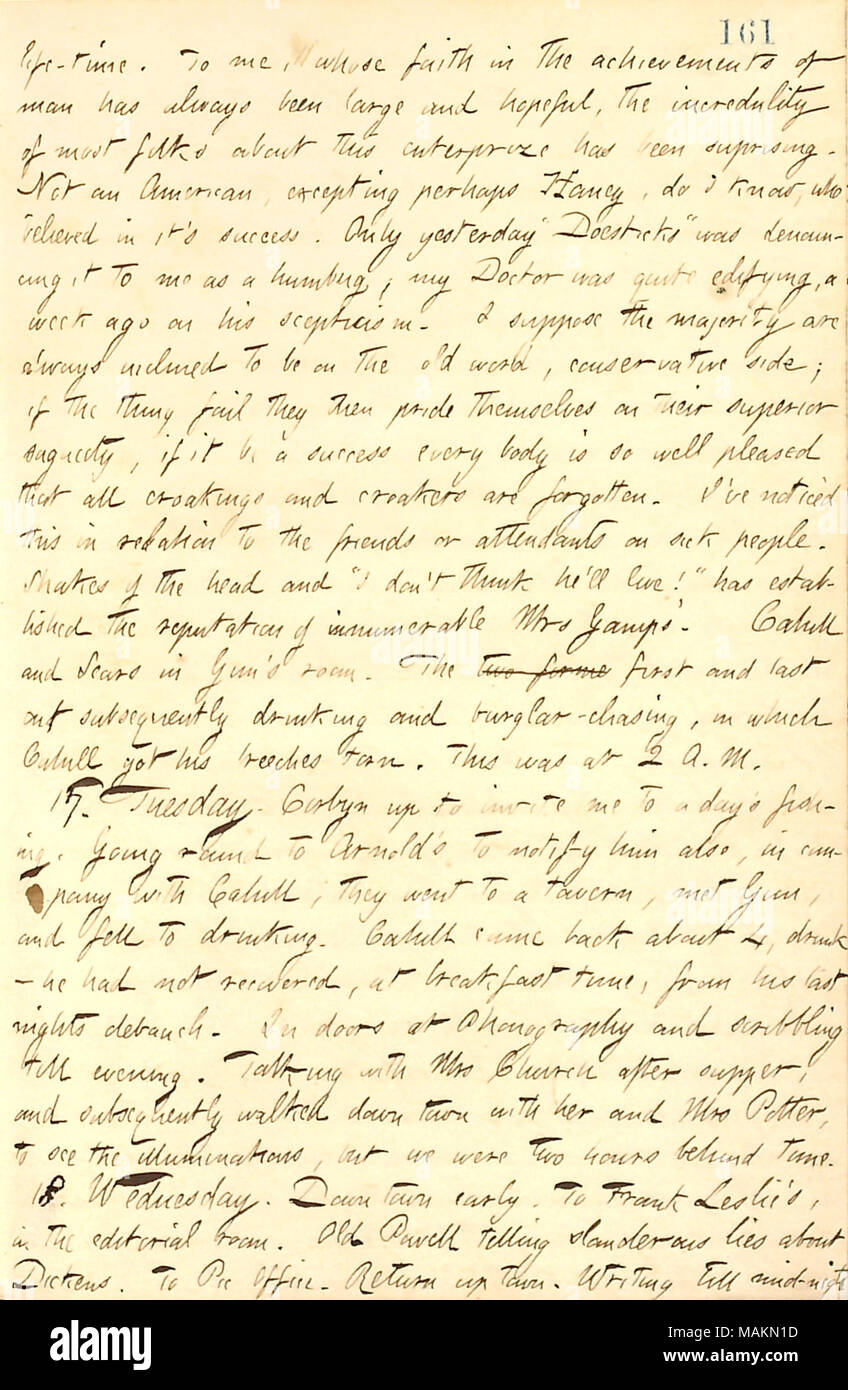 161
life-time. To me, whose faith in the achievements of
man has always been large and hopeful, the incredulity
of most folks about this enterprize has been suprising.
Not an American, excepting perhaps Haney, do I know, who
believed in it's success. Only yesterday "Doesticks" was denoun-
cing it to me as a humbug; my Doctor was quite edifying, a
week ago on his scepticism. I suppose the majority are
always inclined to be on the old word, conservative side;
if the thing fail they then pride themselves on their superior
sagacity, if it be a success every body is so well pleased
that all croakings and croakers are forgotten. I've noticed
this in relation to the friends or attendants on sick people.
Shakes of the head and "I don't think he'll live!" has estab-
lished the reputation of innumerable Mrs Gamps'. Cahill
and Sears in Gun's room. The two forme first and last
out subsequently drinking and burglar-chasing, in which
Cahill got his breeches torn. This was at 2 A.M.
17. Tuesday. Corbyn up to invite me to a day's fish-
ing. Going round to Arnold's to notify him also, in com-
pany with Cahill, they went to a tavern, met Gun,
and fell to drinking. Cahill came back about 4, drunk
- he had not recovered, at breakfast time, from his last
nights debauch. In doors at Phonography and scribbling
till evening. Talking with Mrs Church after supper,
and subsequently walked down town with her and Mrs Potter,
to see the illuminations, but we were two hours behind time.
18. Wednesday. Down town early. To Frank Leslie's,
in the editorial room. Old Powell telling slanderous lies about
Dickens. To Pic Office. Return up town. Writing till mid-night
alamy
Image ID: MAKN1D
www.alamy.com